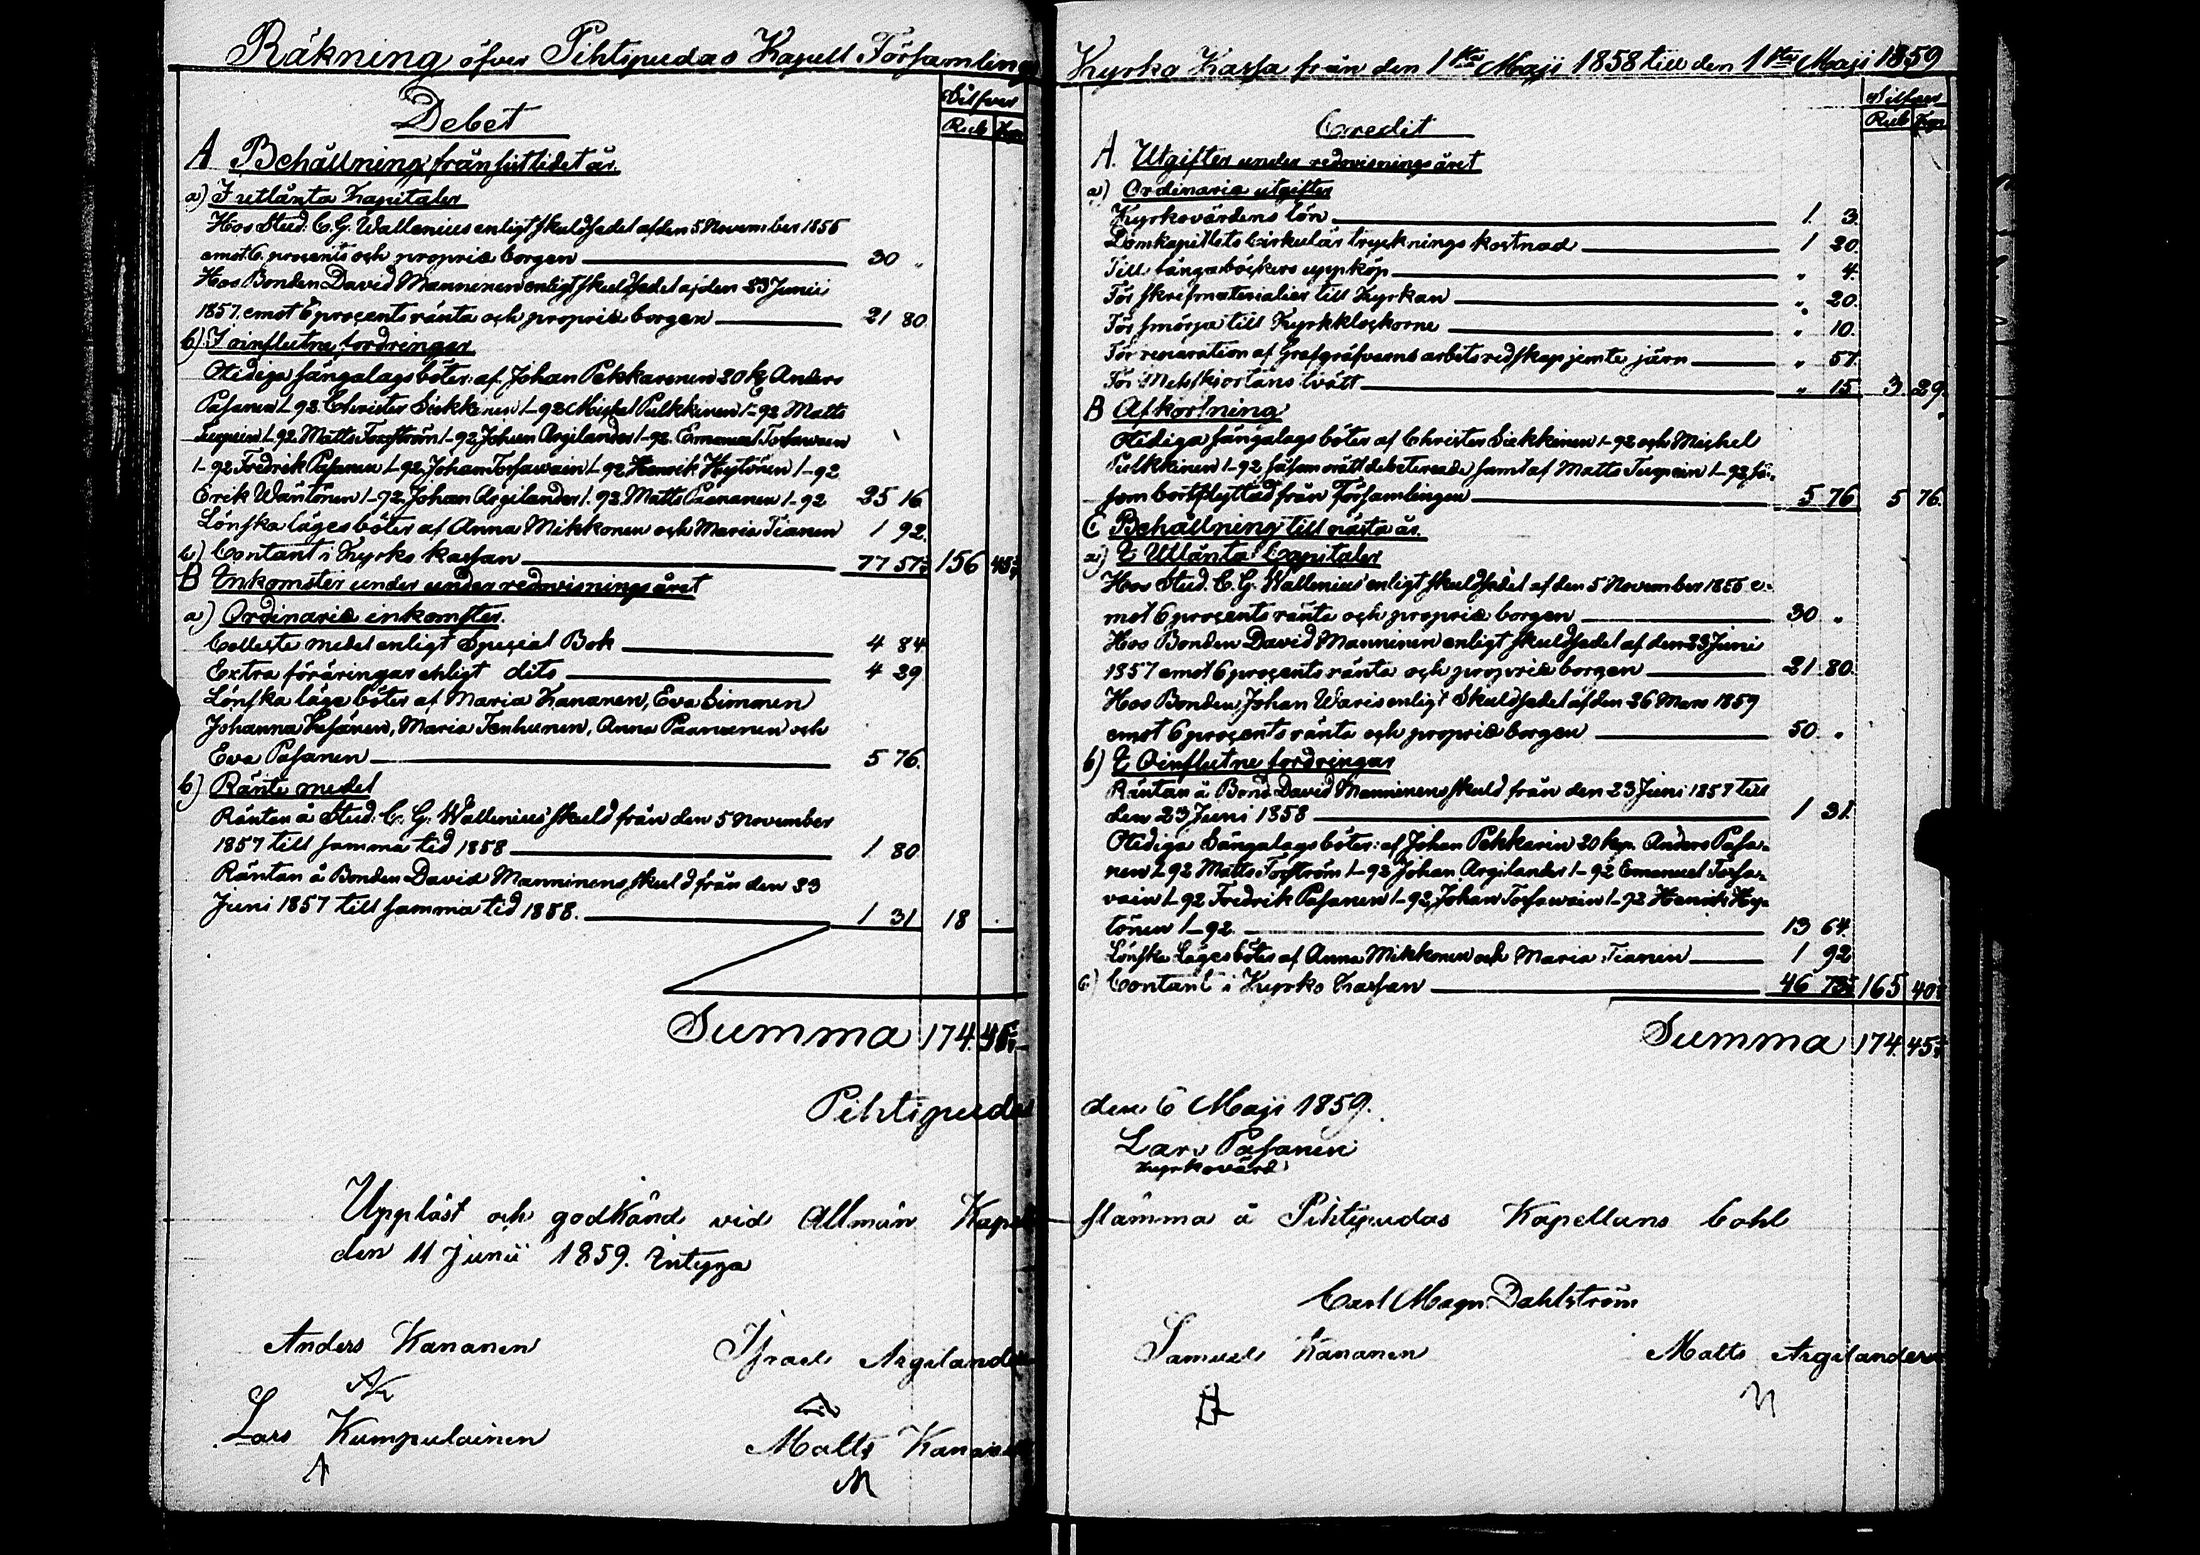 Räkning öfver Pihtipudas Kapell Församling
Silfver
Rub Kop
Debet
A Behållning från sistlidet år.
a) I utlånta Kapitaler
Hos Stud: C. G. Wallenius enligt skuldsedel af den 5 November 1856
emot 6 procents och proprie borgen 30 "
Hos Bonden David Manninen enligt skuldsedel af den 23 Junii
1857 emot 6 procents ränta och proprie borgen 21 80
b) I oinflutne fordringar
Otidiga sängalagsböter: af Johan Pekkarinen 20 k, Anders
Pasanen 1-92 Christer Siekkinen 1-92 Michel Pulkkinen 1-92 Matts
Turpein 1-92 Matts Forsström 1-92 Johan Argilander 1-92 Emanuel Torfwain
1-92 Fredrik Pasanen 1-92 Johan Torfwain 1-92 Henrik Hytönen 1-92
Erik Wäntönen 1-92 Johan Argilander 1.92 Matts Paananen 1-92 25 16
Lönska lägesböter af Anna Mikkonen och Maria Tianen 1 92.
c) Contant i Kyrko kassan 77 57 156 45
B Inkomster under under redovisnings året
a) Ordinarie inkomster.
Collecte medel enligt Special Bok 4 84
Extra föräringar enligt dito 4 29
Lönska läge böter af Maria Kananen, Eva Simonen
Johanna Pasanen, Maria Tenhunen, Anna Paananen och
Eva Pasanen 5 76.
b) Ränte medel
Räntan å Stud: C. G. Wallenius skuld från den 5 November
1857 till samma tid 1858 1 80
Räntan å Bonden David Manninens skuld från den 23
Juni 1857 till samma tid 1858. 1 31 18
Summa 174. 45
Pihtipudas
Uppläst och godkänd vid Allmän Kapell
den 11 Junii 1859. Intyga
Anders Kananen
AK
Israel Argilander
Lars Kumpulainen
Matts Kananen
M
Kyrko Kassa från den 1sta Maji 1858 till den 1sta Maji 1859
Silfver
Rub Kop
Credit
A. Utgifter under redovisnings året
a) Ordinarie utgifter
Kyrkovärdens lön 1. 3.
Domkapitlets Cirkulär trycknings kostnad 1 20.
Till fångaböckers uppköp " 4.
För skrifmaterialier till Kyrkan " 20.
För smörja till Kyrkklockorne " 10.
För reparation af Grafgräfvarns arbetsredskap jemte järn " 57.
För Messkjortans tvätt " 15 3 29.
B Afkortning
Otidiga sängalags böter af Christer Siekkinen 1-92 och Michel
Pulkkinen 1-92 såsom orätt debiterade samt af Matts Turpein 1-92 så-
som bortflyttad från Församlingen 5 76 5 76.
C Behållning till nästa år.
a) I Utlånta Capitaler
Hos Stud. C. G. Wallenius enligt skuldsedel af den 5 November 1856 e-
mot 6 procents ränta och proprie borgen 30 "
Hos Bonden David Manninen enligt skuldsedel af den 23 Juni
1857 emot 6 procents ränta och proprie borgen 21 80.
Hos Bonden Johan Waris enligt Skuldsedel af den 26 Mars 1859
emot 6 procents ränta och proprie borgen 50 "
b) I Oinflutne fordringar
Räntan å Bond. David Manninens skuld från den 23 Juni 1857 till
den 23 Juni 1858 1 31.
Otidiga Sängalagsböter: af Johan Pekkarin 20 kop. Anders Pasa-
nen 1-92 Matts Forsström 1-92 Johan Argilander 1-92 Emanuel Torfa-
vain 1-92 Fredrik Pasanen 1-92, Johan Torfawain 1-92 Henrik Hy-
tönen 1-92. 13 64.
Lönska Lägesböter af Anna Mikkonen och Maria Tianen 1 92
c) Contant i Kyrko kassan 46 73 165 40
Summa 174. 45
den 6 Maji 1859.
Lars Pasanen
Kyrkovärd
stämma å Pihtipudas Kapellans bohl
Carl Magn. Dahlström
Samuel Kananen
Matts Argilander